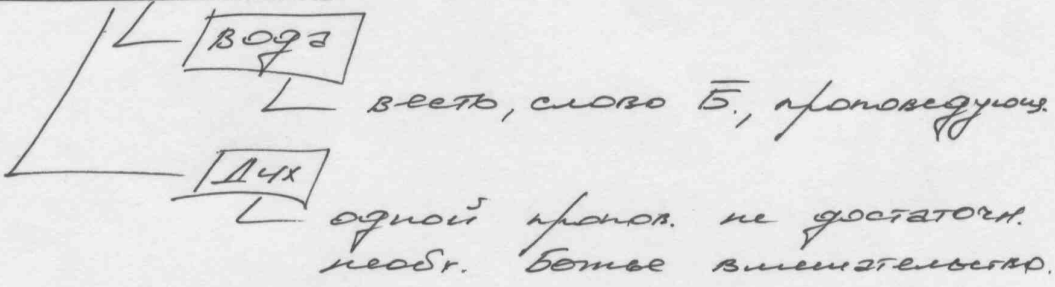 вода
весть, слово Б., проповедующ.
Дух
одной пропов. не достаточн.
необх. Божье вмешательство.